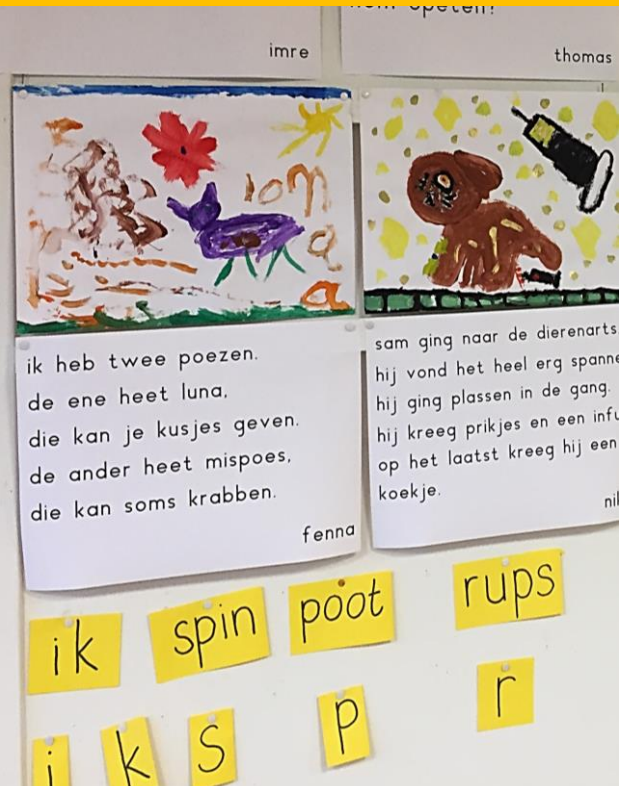 opeten?
imre
thomas
ik heb twee poezen.
de ene heet luna,
die kan je kusjes geven.
de ander heet mispoes,
die kan soms krabben.
fenna
sam ging naar de dierenarts
hij vond het heel erg spanne
hij ging plassen in de gang.
hij kreeg prikjes en een infu
op het laatst kreeg hij een
koekje.
ik spin poot rups
i k s p r